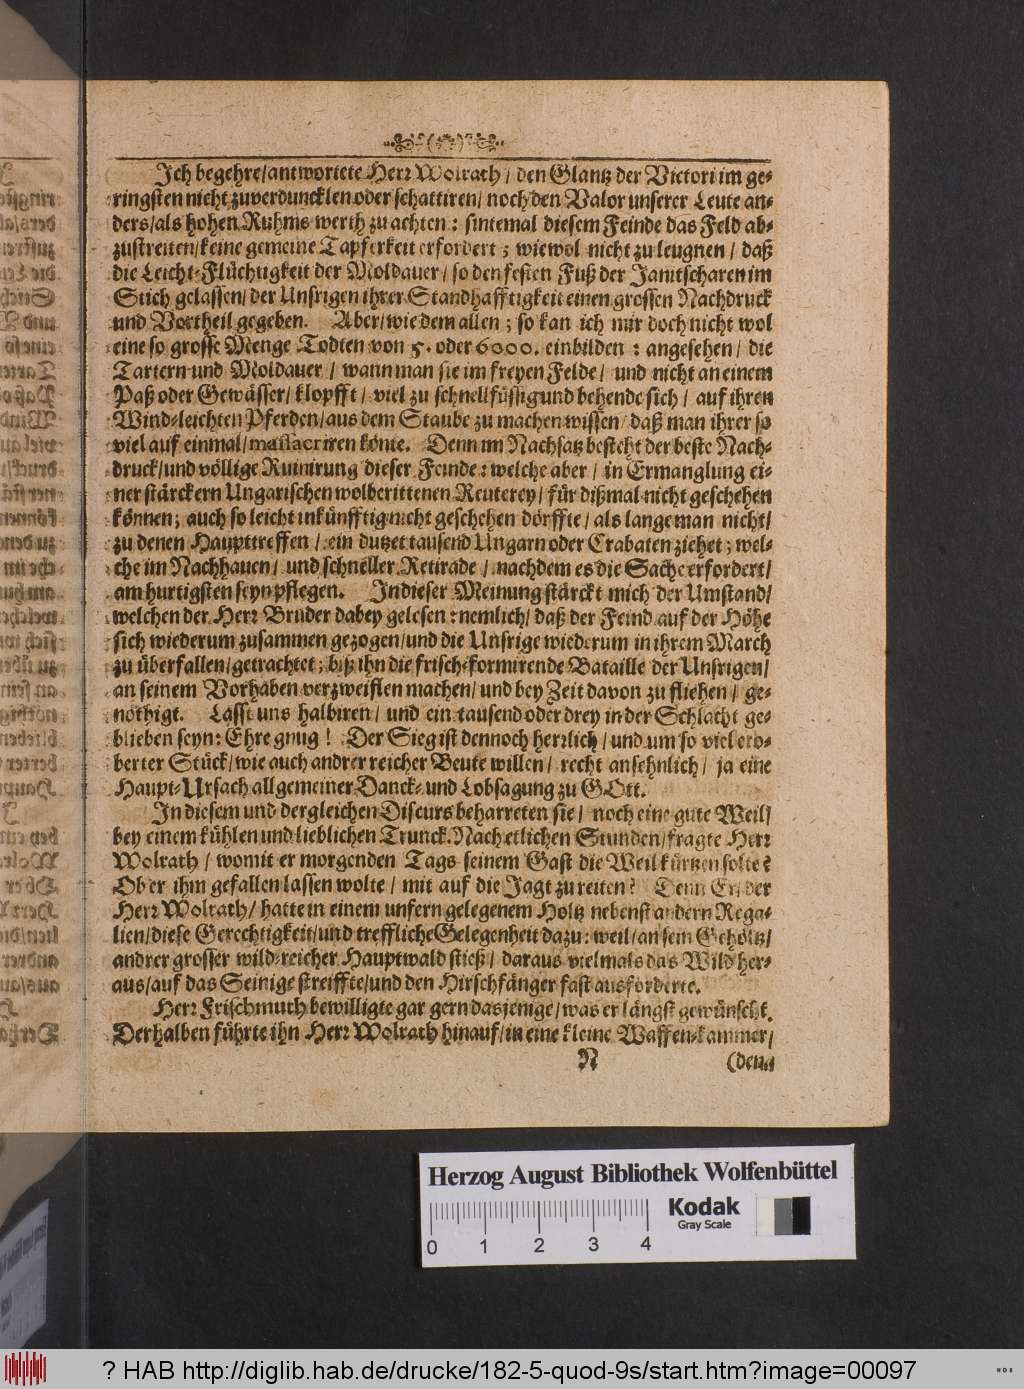 Ich begehre/antwortete Herr Wolrath/ den Glantz der Victori im ge-
ringsten nicht zuverduncklen oder schattiren/ noch den Valor unserer Leute an-
ders/als hohen Ruhms werth zu achten: sintemal diesem Feinde das Feld ab-
zustreiten/keine gemeine Tapferkeit erfordert; wiewol nicht zu leugnen/ daß
die Leicht-Flüchtigkeit der Moldauer/ so den festen Fuß der Janitscharen im
Stich gelassen/der Unsrigen ihrer Standhafftigkeit einen grossen Nachdruck
und Vortheil gegeben. Aber/wie dem allen; so kan ich mir doch nicht wol
eine so grosse Menge Todten von 5. oder 6000. einbilden: angesehen/ die
Tartern und Moldauer/ wann man sie im freyen Felde/ und nicht an einem
Paß oder Gewässer/ klopfft/ viel zu schnellfüssig und behende sich/ auf ihren
Wind-leichten Pferden/aus dem Staube zu machen wissen/ daß man ihrer so
viel auf einmal/massacriren könte. Denn im Nachsatz besteht der beste Nach-
druck/und völlige Ruinirung dieser Feinde: welche aber/ in Ermanglung ei-
ner stärckern Ungarischen wolberittenen Reuterey/ für dißmal nicht geschehen
können; auch so leicht inkünfftig nicht geschehen dörffte/als lange man nicht/
zu denen Haupttreffen/ ein dutzet tausend Ungarn oder Crabaten ziehet; wel-
che im Nachhauen/ und schneller Retirade/ nachdem es die Sache erfordert/
am hurtigsten seyn pflegen. In dieser Meinung stärckt mich der Umstand/
welchen der Herr Bruder dabey gelesen: nemlich/ daß der Feind auf der Höhe
sich wiederum zusammen gezogen/und die Unsrige wiederum in ihrem March
zu überfallen/getrachtet; biß ihn die frisch-formirende Bataille der Unsrigen/
an seinem Vorhaben verzweiflen machen/ und bey Zeit davon zu fliehen/ ge-
nöthigt. Lasst uns halbiren/ und ein tausend oder drey in der Schlacht ge-
blieben seyn: Ehre gnug! Der Sieg ist dennoch herrlich/ und um so viel ero-
berter Stück/wie auch andrer reicher Beute willen/ recht ansehnlich/ ja eine
Haupt-Ursach allgemeiner Danck- und Lobsagung zu GOtt.
In diesem und dergleichen Discurs beharreten sie/ noch eine gute Weil/
bey einem kühlen und lieblichen Trunck. Nach etlichen Stunden/fragte Herr
Wolrath/ womit er morgenden Tags seinem Gast die Weil kürtzen solte?
Ob er ihm gefallen lassen wolte/ mit auf die Jagt zu reiten? Denn Er/der
Herr Wolrath/ hatte in einem unfern gelegenem Holtz nebenst andern Rega-
lien/diese Gerechtigkeit/und treffliche Gelegenheit dazu: weil/an sein Gehöltz/
andrer grosser wild-reicher Hauptwald stieß/ daraus vielmals das Wild her-
aus/auf das Seinige streiffte/und den Hirschfänger fast ausforderte.
Herr Frischmuth bewilligte gar gern dasjenige/was er längst gewünscht.
Derhalben führte ihn Herr Wolrath hinauf/in eine kleine Waffen-kammer/
N (denn
Herzog August Bibliothek Wolfenbüttel
Kodak
Gray Scale
0 1 2 3 4
? HAB http://diglib.hab.de/drucke/182-5-quod-9s/start.htm?image=00097